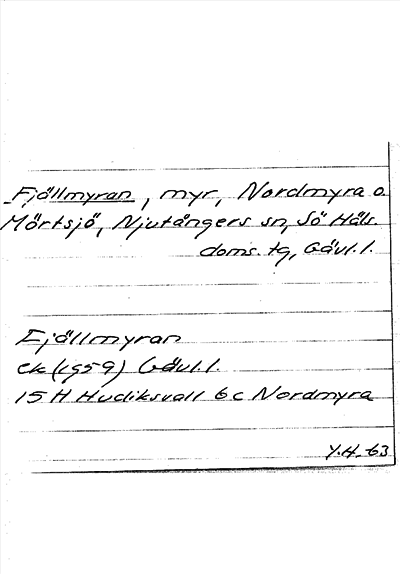 Fjällmyran, myr, Nordmyra o.
Mörtsjö, Njutångers sn, Sö Häls.
doms. tg, Gävl. l.
Fjällmyran
ek (1959) Gävl. l.
15 H Hudiksvall 6 c Nordmyra
Y.H. -63